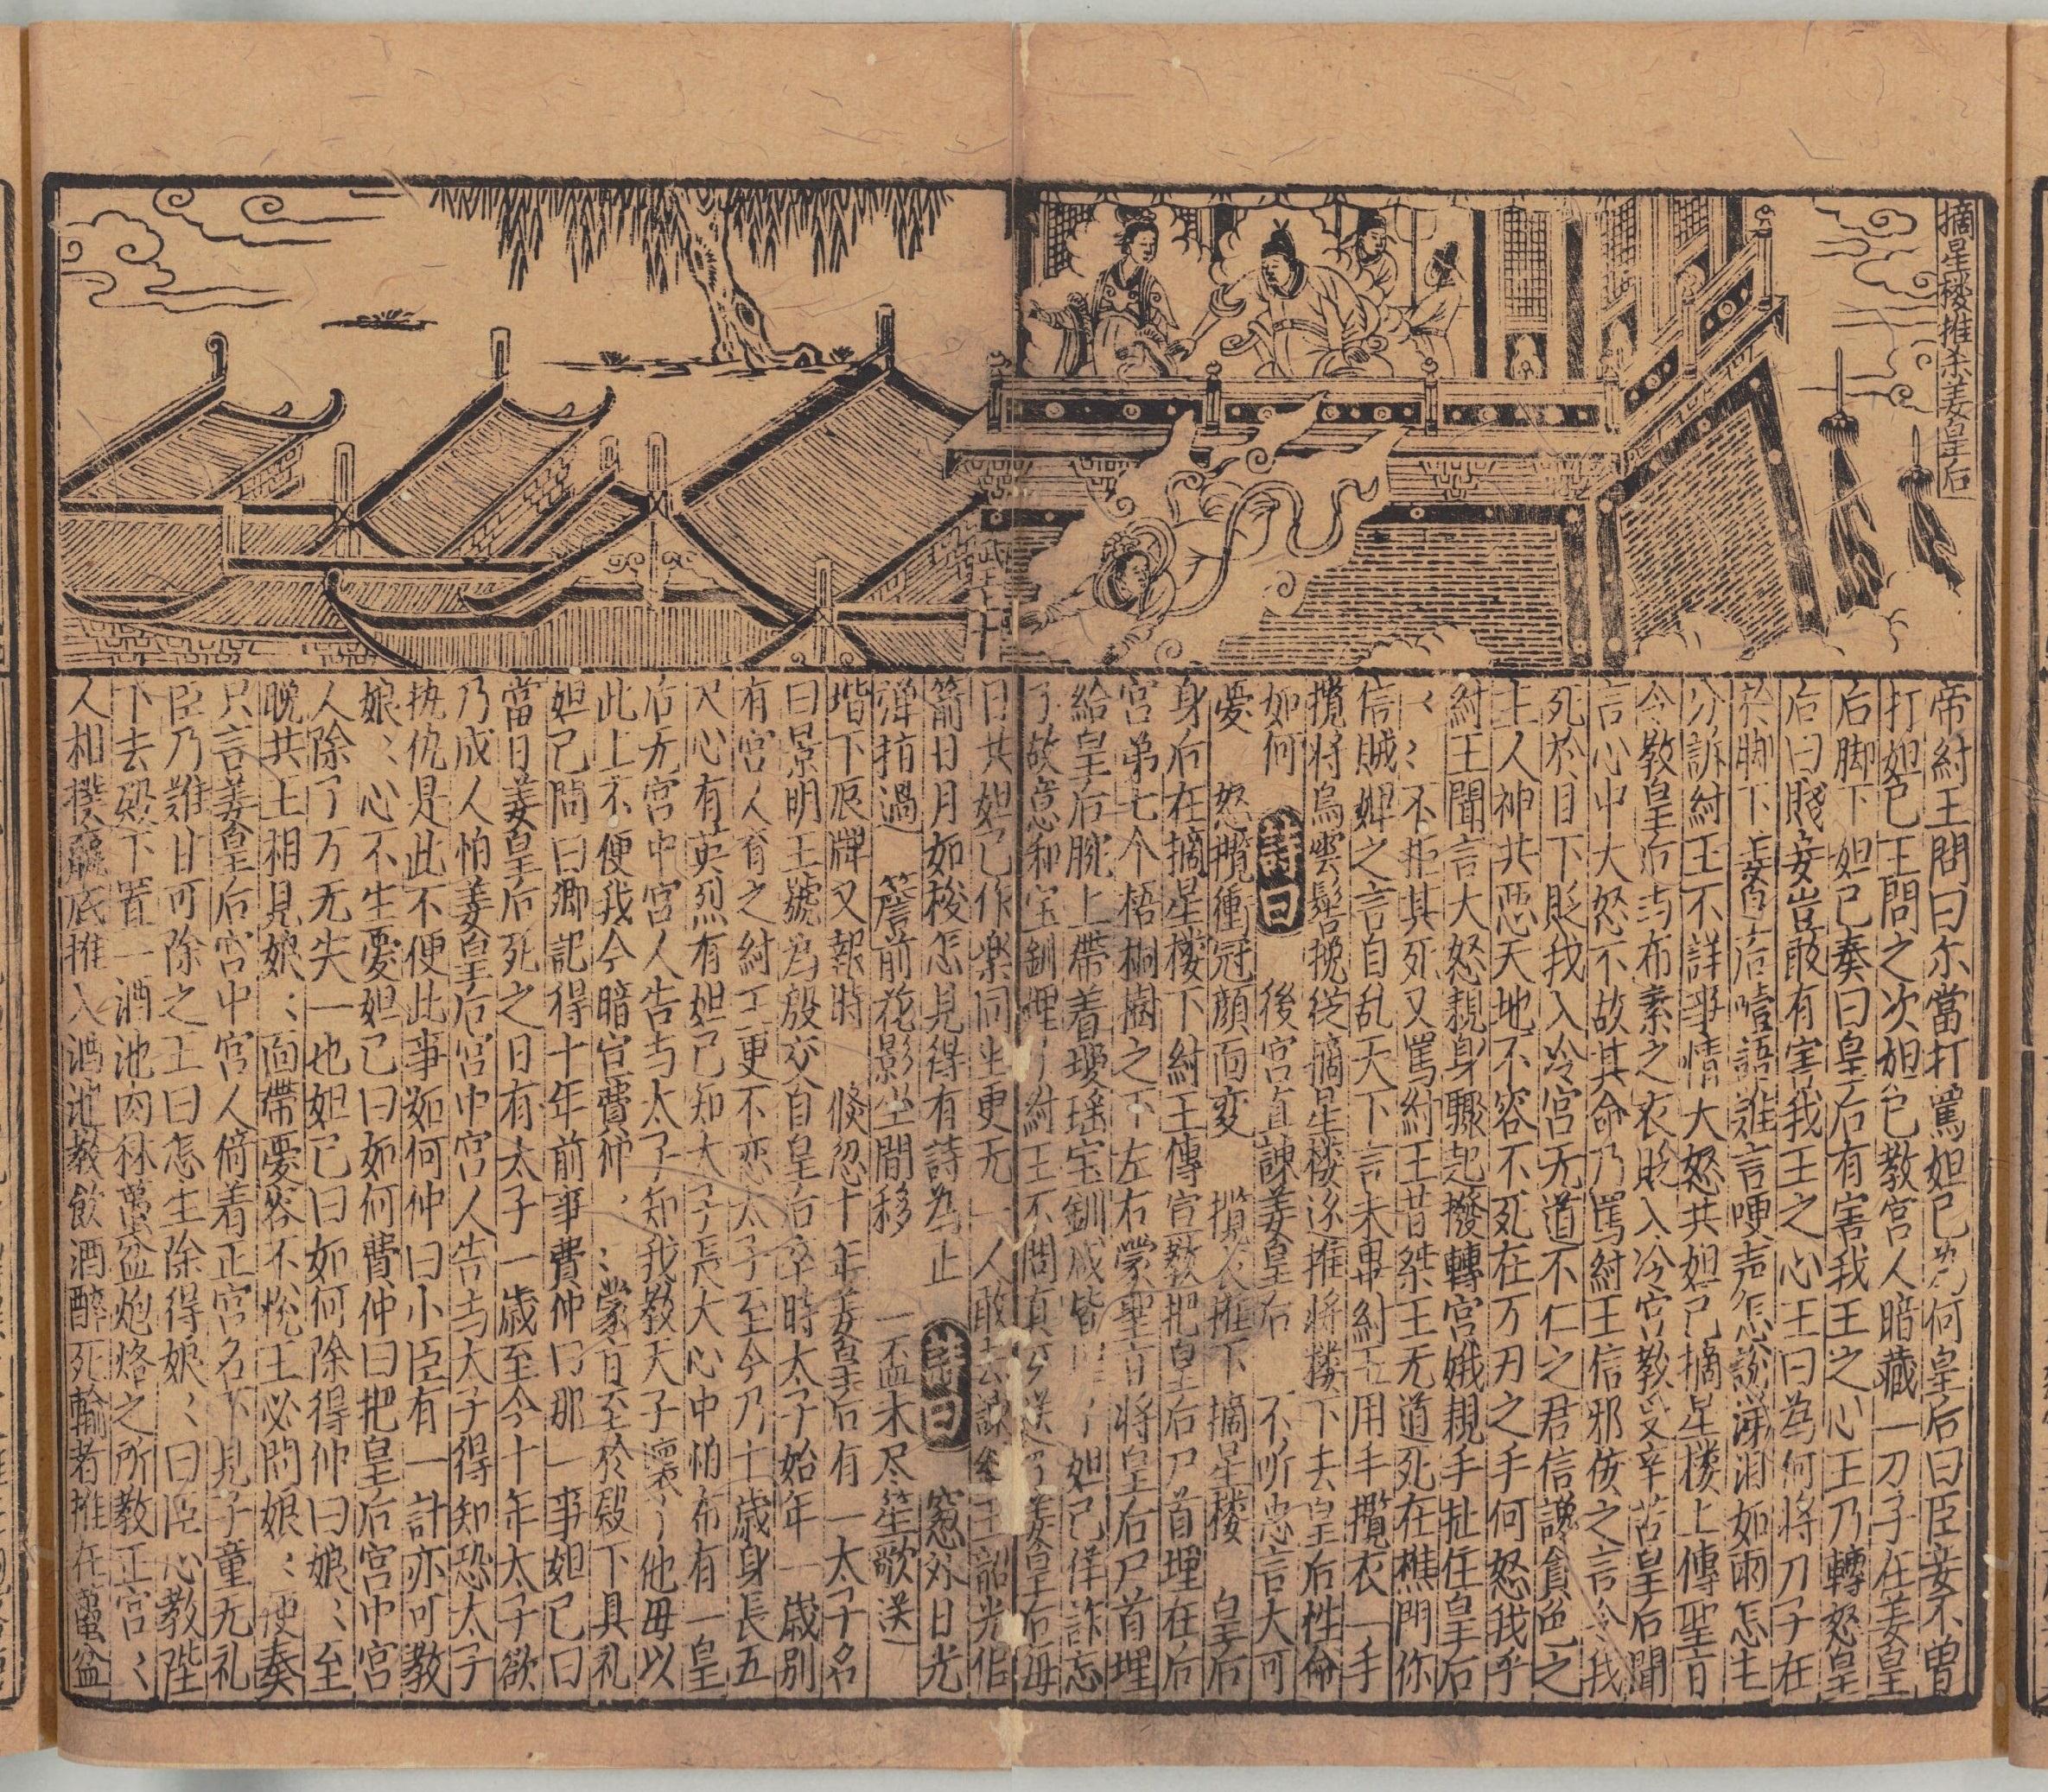 摘星楼推杀姜皇后
帝紂王問曰尓當打罵妲己為何皇后曰臣妾不曾
打妲己王問之次妲己教宮人暗藏一刀子在姜皇
后脚下妲己奏曰皇后有害我王之心王乃轉怒皇
后曰賤妾豈敢有害我王之心王曰為何將刀子在
於脚下姜皇后噎語誰言哽声怎說淚泪如雨怎生
分訴紂王不詳事情大怒共妲己摘星楼上傳聖旨
令教皇后与布素之衣貶入冷宮教受辛苦皇后聞
言心中大怒不故其命乃罵紂王信邪佞之言令我
死於目下貶我入冷宮无道不仁之君信讒貪色之
主人神共惡天地不容不死在万刃之手何怒我乎
紂王聞言大怒親身驟起撥轉宮娥親手扯住皇后
〻〻不拒其死又罵紂王昔桀王无道死在樵門你
信賊婢之言自乱天下言未畢紂王用手攬衣一手
攬將烏雲髻挽從摘星楼逐推將楼下去皇后性命
如何 詩曰 後宮直諫姜皇后 不听忠言大可
憂 怒攬衝冠顏面変 攬衣推下摘星楼 皇后
身后在摘星楼下紂王傳宣教把皇后尸首埋在后
宮弟七个梧桐樹之下左右蒙聖旨將皇后尸首埋
給皇后腕上帶着瓊瑶宝釧咸皆 了妲己佯詐忘
了故意和宝釧埋了紂王不問真 姜皇后毎
日共妲己作楽同坐更无一人敢去諫紂王詔光似
箭日月如梭怎見得有詩為止 詩曰 窓外日光
弾指過 簷前花影坐間移 一盃未尽笙歌送
堦下辰牌又報時 倏忽十年姜皇后有一太子名
曰景明王號為殷交自皇后卒時太子始年一歳別
有宮人育之紂王更不恋太子至今乃十歳身長五
尺心有英烈有妲己知太子長大心中怕布有一皇
后无宮中宮人告与太子知我教天子壞了他毋以
此上不便我今暗宣費仲〻〻蒙旨至於殿下具礼
妲己問曰卿記得十年前事費仲曰那一事妲己曰
當日姜皇后死之日有太子一歳至今十年太子欲
乃成人怕姜皇后宮中宮人告与太子得知恐太子
执仇是此不便此事如何仲曰小臣有一計亦可教
娘〻心不生憂妲己曰如何費仲曰把皇后宮中宮
人除了万无失一也妲己曰如何除得仲曰娘〻至
晚共王相見娘〻面帶憂容不悅王必問娘〻便奏
只言姜皇后宮中宮人倚着正宮名下見子童无礼
臣乃難甘可除之王曰怎生除得娘〻曰臣心教陛
下去殿下置一酒池肉林蠆盆炮烙之所教正宮〻
人相撲羸底推入酒池教飲酒醉死輸者推在蠆盆